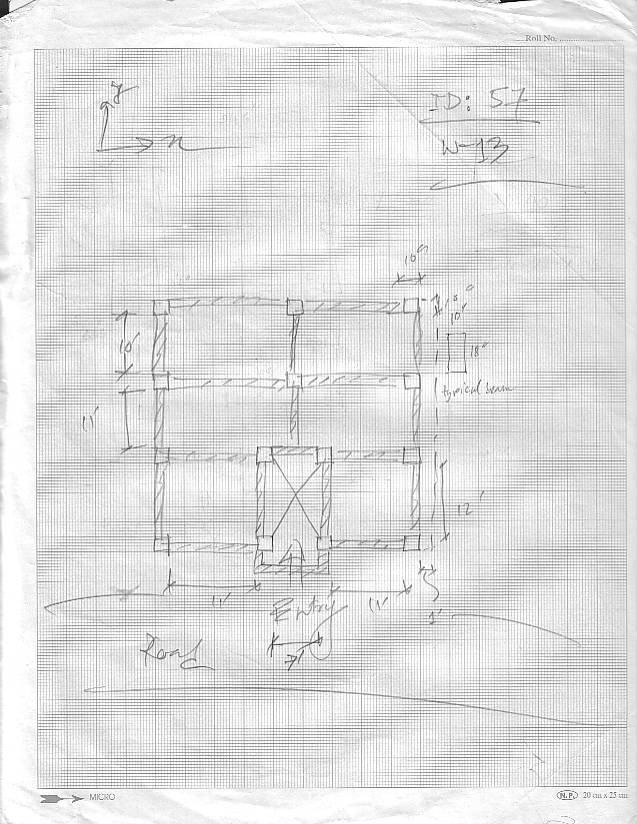 Roll No. ..............
y
ID: 57
x
W-13
10"
10'
10"
18"
typical beam
11'
12'
11'
Entry
11'
1'
Road
MICRO
N.P. 20 cm x 25 cm